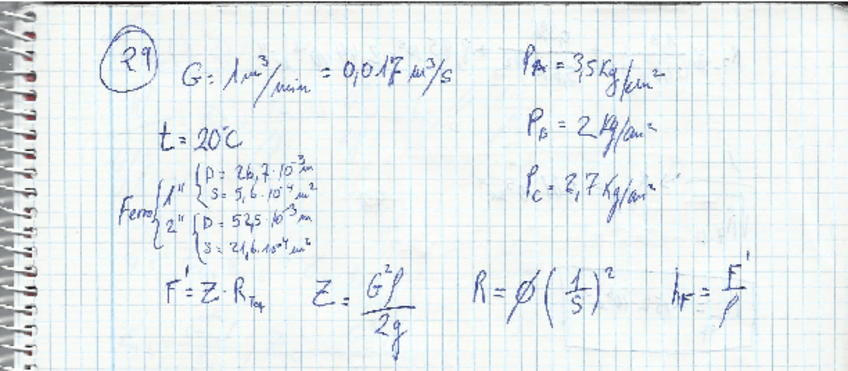 29
G = 1 m³/min = 0,017 m³/s
P_A = 3,5 Kg/cm²
t = 20°C
P_B = 2 Kg/cm²
Ferro { 1" { D = 26,7·10⁻³ m
S = 5,6·10⁻⁴ m²
P_C = 2,7 Kg/cm²
2" { D = 52,5·10⁻³ m
S = 21,6·10⁻⁴ m²
F' = Z · R_Tot Z = G²ρ / 2g R = φ (1/S)² h_F = F'/ρ